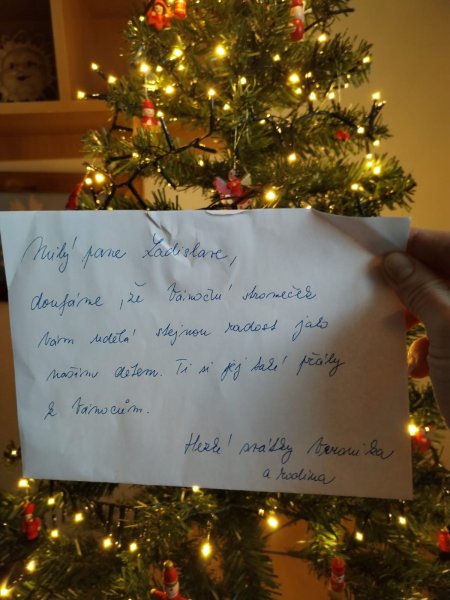 Milý pane Ladislave,
doufáme, že Vánoční stromeček
vám udělá stejnou radost jako
našim dětem. Ti si jej také přály
k Vánocům.
Hezké svátky Veronika
a rodina